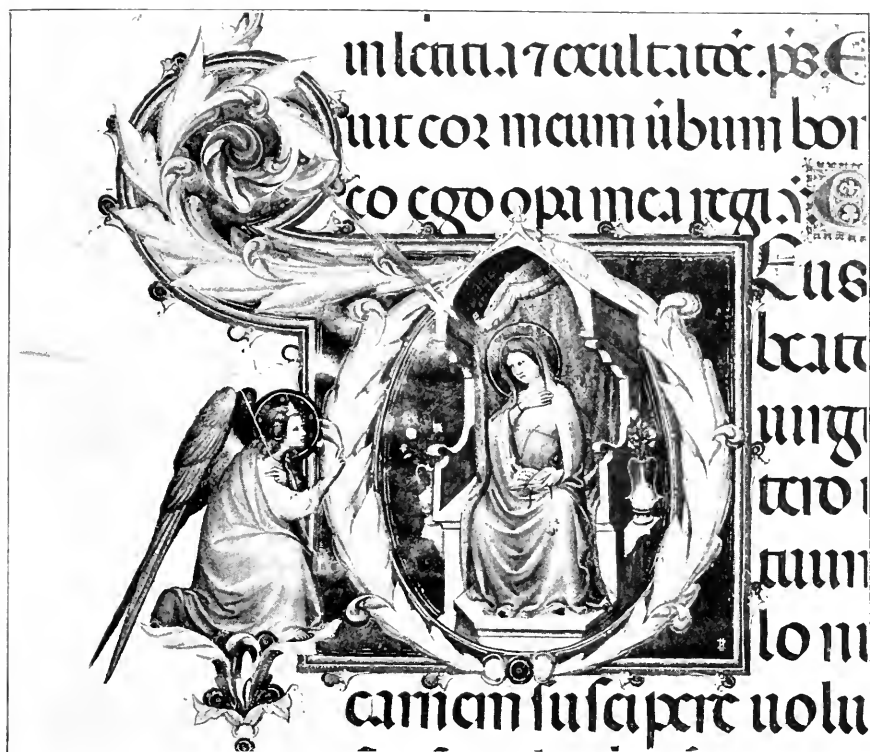 in letitia ⁊ exultatōe. p̄s. E
uit cor meum ūbum bon
co ego opa mea regi.
Eus
beate
uirgi
tero
tuum
lo n
carnem suscipere uolu